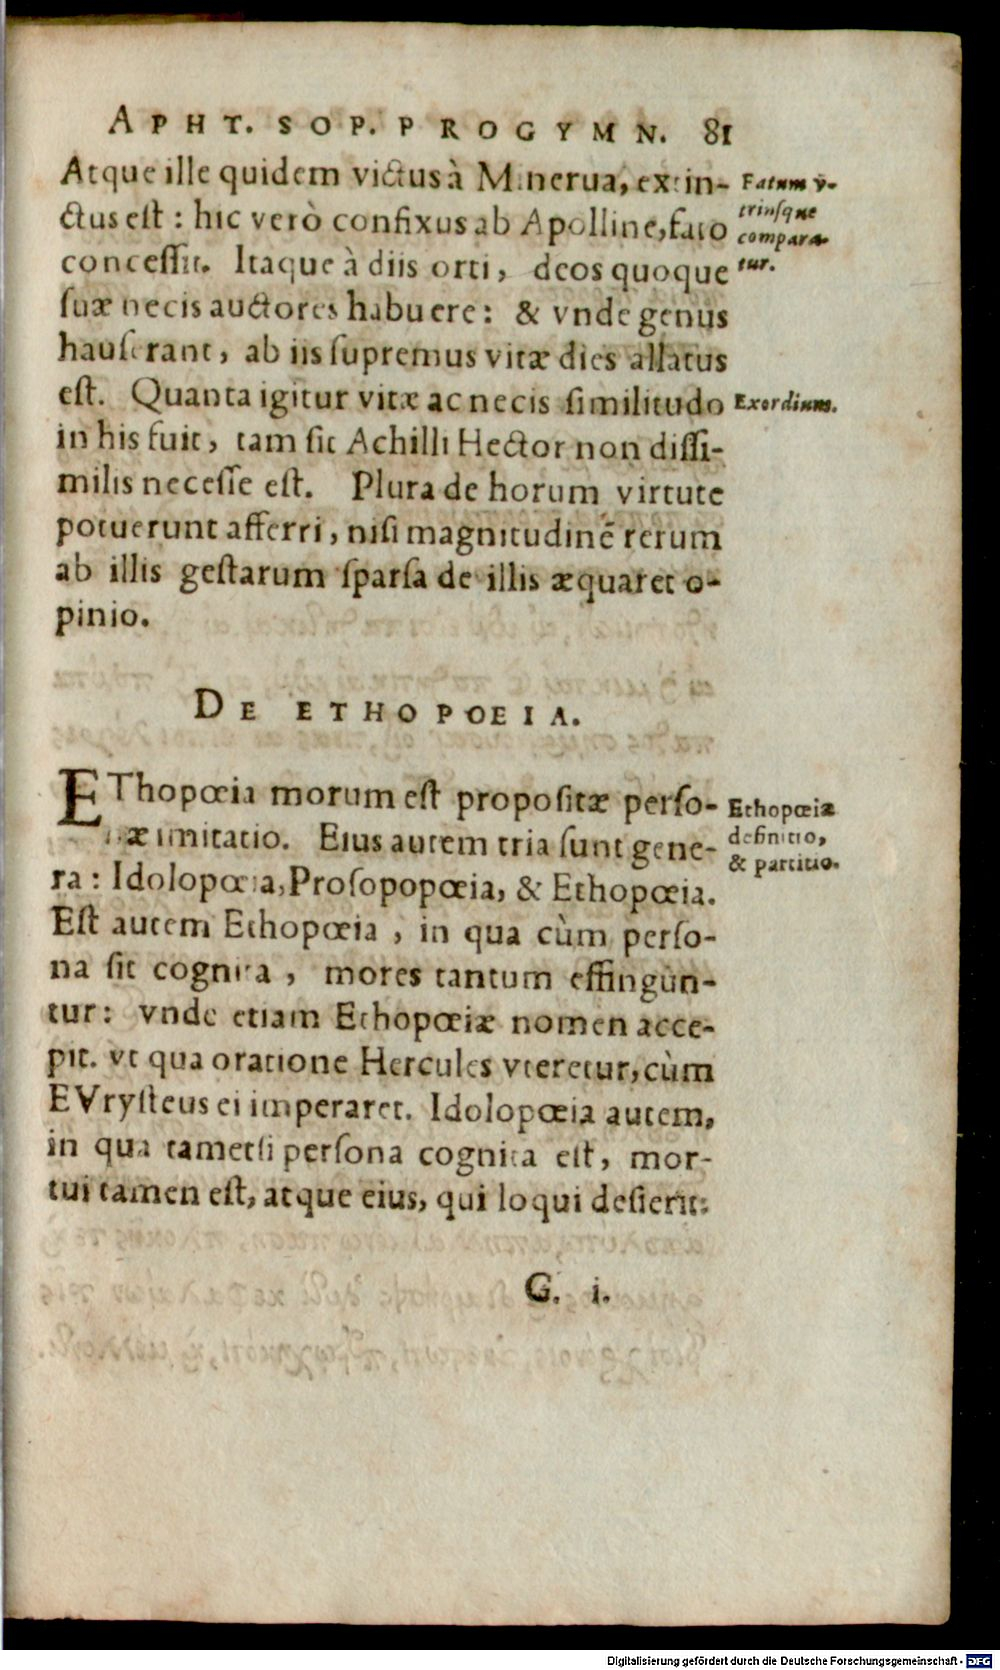 APHT. SOP. PROGYMN. 81
Atque ille quidem victus à Minerua, extin-
ctus est : hic verò confixus ab Apolline, fato
concessit. Itaque à diis orti, deos quoque
suæ necis auctores habuere : & vnde genus
hauserant, ab iis supremus vitæ dies allatus
est. Quanta igitur vitæ ac necis similitudo
in his fuit, tam sit Achilli Hector non dissi-
milis necesse est. Plura de horum virtute
potuerunt afferri, nisi magnitudinẽ rerum
ab illis gestarum sparsa de illis æquaret o-
pinio.
Fatum v-
triusque
compara-
tur.
Exordium.
DE ETHOPOEIA.
EThopœia morum est propositæ perso-
næ imitatio. Eius autem tria sunt gene-
ra : Idolopœia, Prosopopœia, & Ethopœia.
Est autem Ethopœia , in qua cùm perso-
na sit cognita , mores tantum effingun-
tur : vnde etiam Ethopœiæ nomen acce-
pit. vt qua oratione Hercules vteretur, cùm
EVrysteus ei imperaret. Idolopœia autem,
in qua tametsi persona cognita est, mor-
tui tamen est, atque eius, qui loqui desierit:
Ethopœiæ
definitio,
& partitio.
G. i.
Digitalisierung gefördert durch die Deutsche Forschungsgemeinschaft - DFG